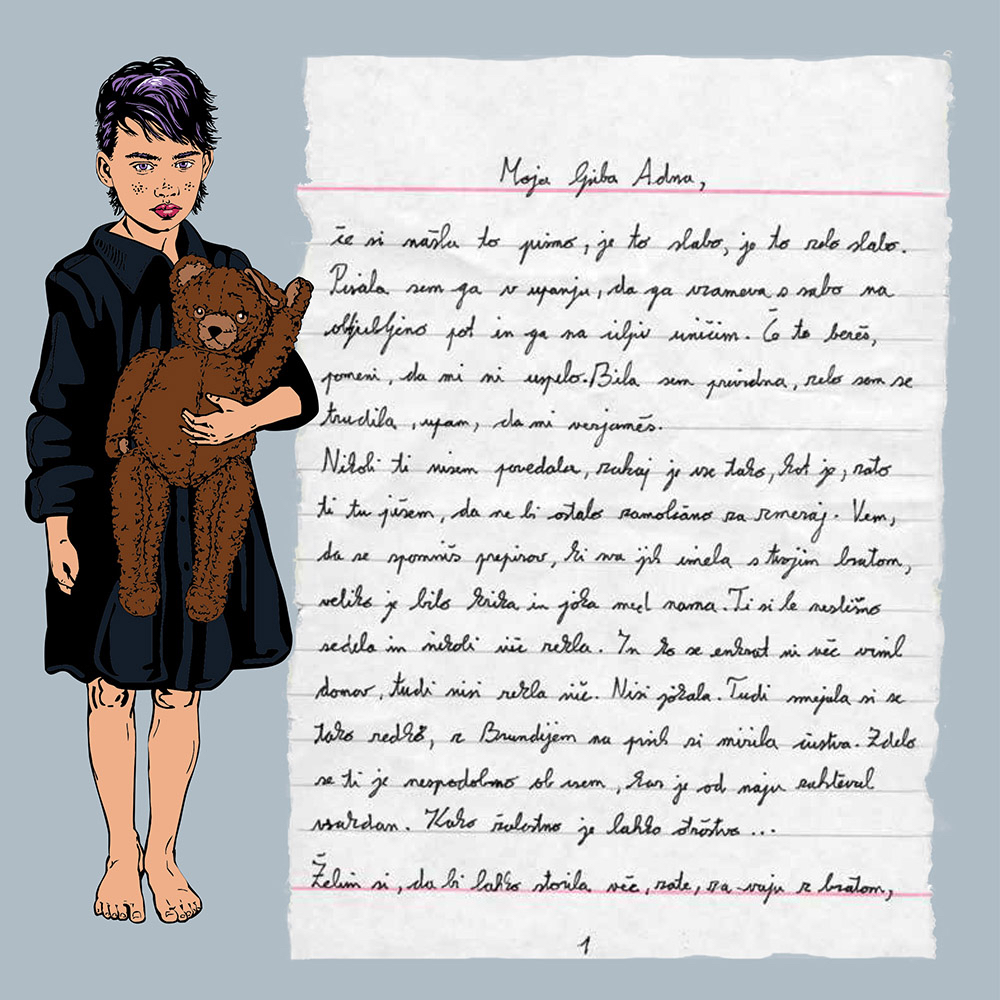 Moja ljuba Adna,
če si našla to pismo, je to slabo, je to zelo slabo.
Pisala sem ga v upanju, da ga vzameva s sabo na
obljubljeno pot in ga na cilju uničim. Če to bereš,
pomeni, da mi ni uspelo. Bila sem previdna, zelo sem se
trudila, upam, da mi verjameš.
Nikoli ti nisem povedala, zakaj je vse tako, kot je, zato
ti tu pišem, da ne bi ostalo zamolčano za zmeraj. Vem,
da se spomniš prepirov, ki sva jih imela s tvojim bratom,
veliko je bilo krika in joka med nama. Ti si le neslišno
sedela in nikoli nič rekla. In ko se enkrat ni več vrnil
domov, tudi nisi rekla nič. Nisi jokala. Tudi smejala si se
tako redko, z Brundijem na prsih si mirila čustva. Zdelo
se ti je nespodobno ob vsem, kar je od naju zahteval
vsakdan. Kako žalostno je lahko otroštvo ...
Želim si, da bi lahko storila več, zate, za vaju z bratom,
1